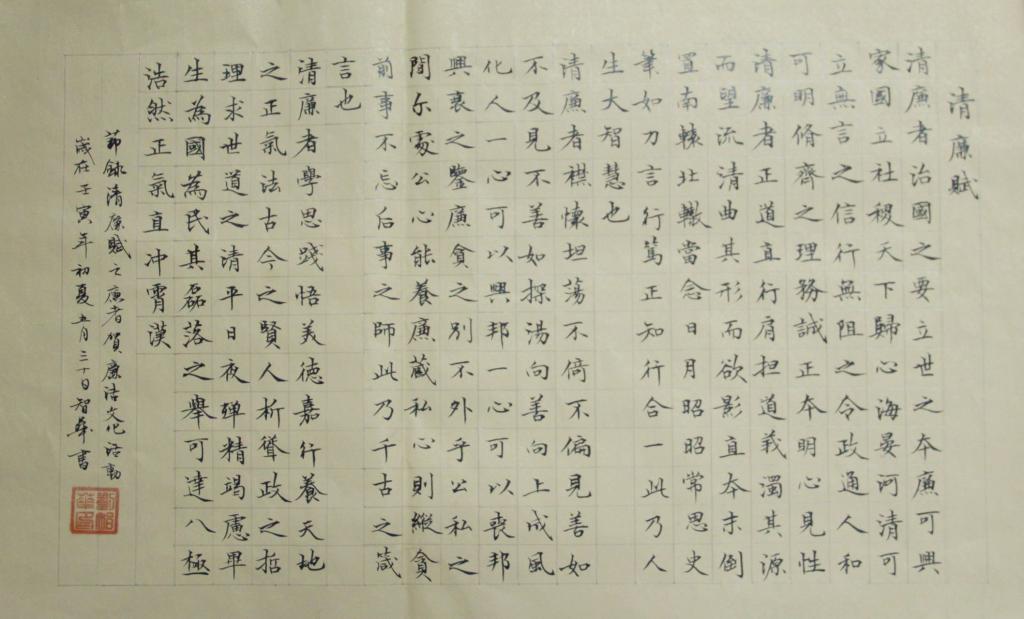 清廉賦
清廉者治國之要立世之本廉可興
家國立社稷天下歸心海晏河清可
立無言之信行無阻之令政通人和
可明脩齊之理務誠正本明心見性
清廉者正道直行肩担道義濁其源
而望流清曲其形而欲影直本末倒
置南轅北轍當念日月昭昭常思史
筆如刀言行篤正知行合一此乃人
生大智慧也
清廉者襟懷坦蕩不倚不偏見善如
不及見不善如探湯向善向上成風
化人一心可以興邦一心可以喪邦
興衰之鑒廉貪之別不外乎公私之
間尔處公心能養廉藏私心則縱貪
前事不忘后事之師此乃千古之箴
言也
清廉者學思踐悟美德嘉行養天地
之正氣法古今之賢人析聳政之哲
理求世道之清平日夜殫精竭慮畢
生為國為民其磊落之舉可達八極
浩然正氣直冲霄漢
節錄清廉賦之廉者賀廉洁文化活動
歲在壬寅年初夏五月三十日智華書